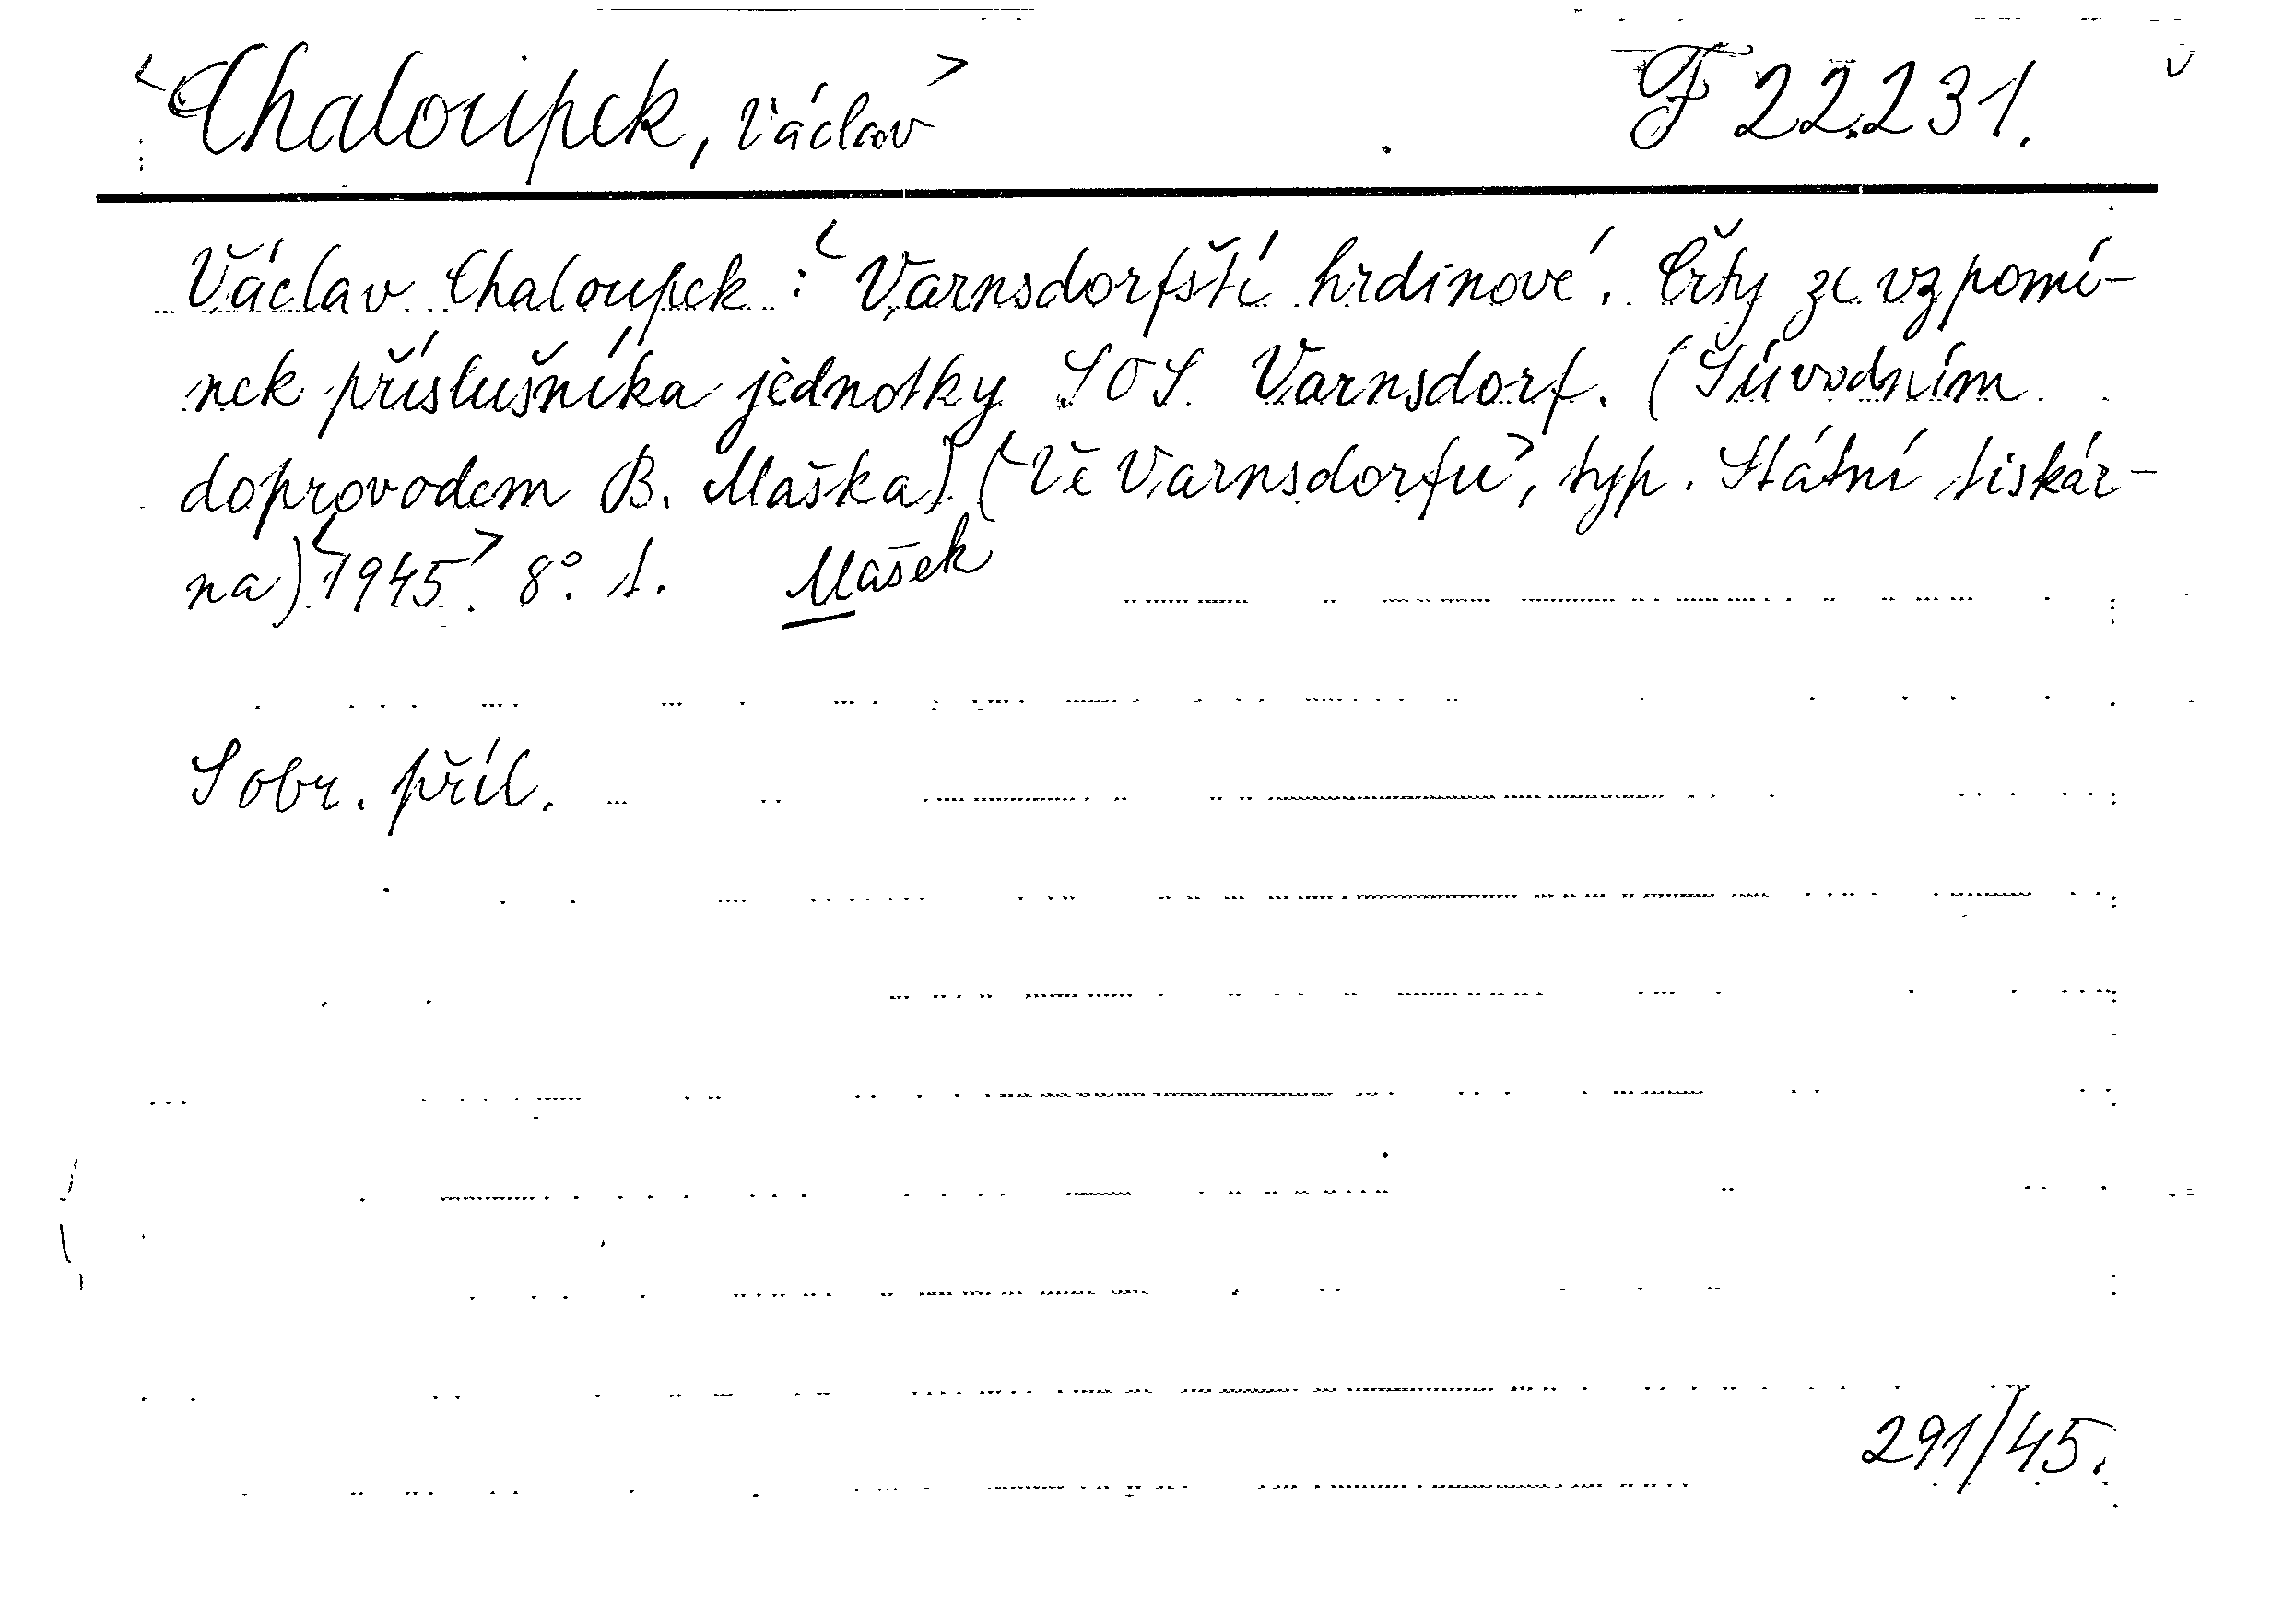 <Chaloupek, Václav> F 22.231.
Václav Chaloupek : <Varnsdorfští hrdinové. Črty ze vzpomí-
nek příslušníka jednotky SOS Varnsdorf. (S úvodním
doprovodem B. Maška.) (<Ve Varnsdorfu>, typ. Státní tiskár-
na) <1945>. 8°. s. Mašek
S obr. příl.
291/45.